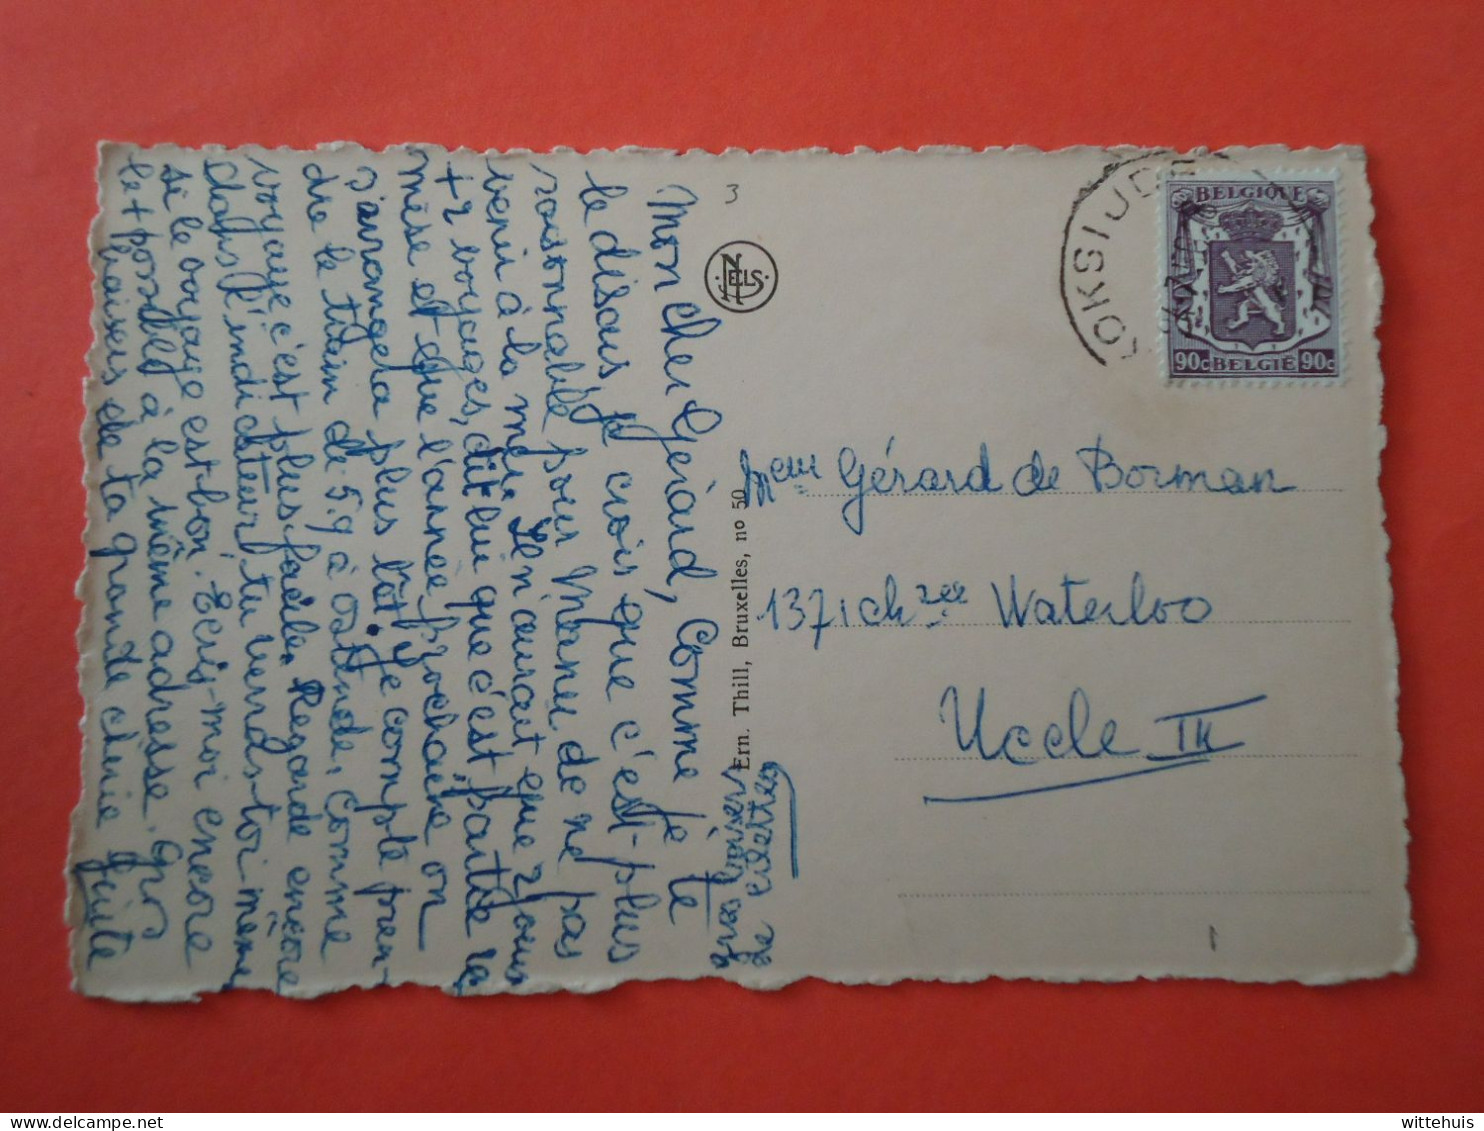 Mon cher Gérard, Comme je te
le disais, je crois que c'est plus
raisonnable pour Mamy de ne pas
venir à la mer. Il n'aurait que 2 jours
+ 2 voyages, dit lui que c'est partie
mise et que l'année prochaine on
s'arrangera plus tôt. Je compte pren-
dre le train de 5.9 à Ostende, comme
voyage c'est plus facile. Regarde encore
dans l'indicateur, tu verras toi même
si le voyage est bon. Ecris-moi encore
le + possible à la même adresse. Gros
baisers de ta grande chérie
3
NELS
Ern. Thill, Bruxelles, no 50
KOKSIJDE
BELGIQUE
90c BELGIË 90c
Meur Gérard de Borman
1371 chzée Waterloo
Uccle III
wittehuis